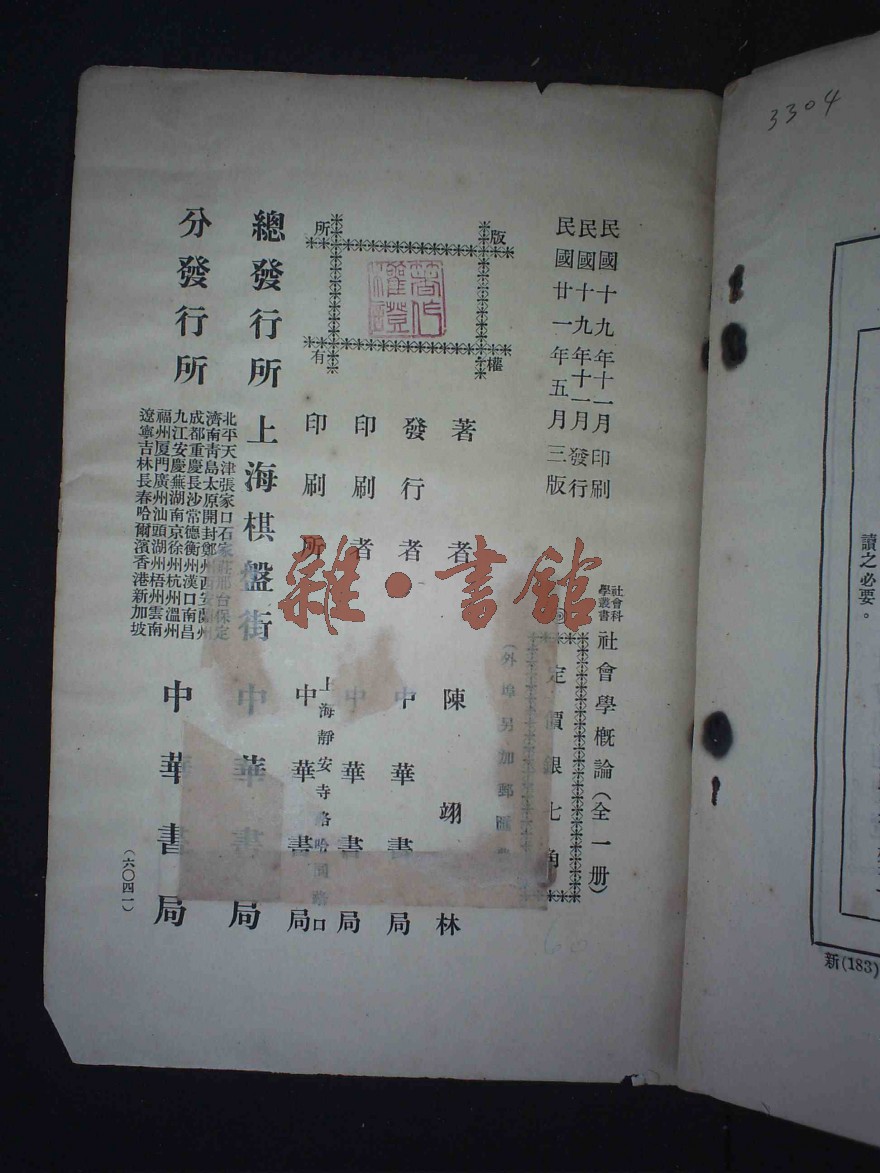 3304
讀之必要。
新(183)
民國十九年十一月印刷
民國十九年十一月發行
民國廿一年五月三版
社會科
學叢書
社會學概論(全一册)
定價銀七角
(外埠另加郵匯
版權所有
著作權證
著者 陳翊林
發行者 中華書局
印刷者 中華書局
上海靜安寺路哈同路口
印刷所 中華書局
總發行所 上海棋盤街 中華書局
分發行所
北平天津張家口石家莊邢台保定
濟南青島太原開封鄭州西安蘭州
成都重慶長沙常德衡州漢口南昌
九江安慶蕪湖南京徐州杭州溫州
福州厦門廣州汕頭潮州梧州雲南
遼寧吉林長春哈爾濱香港新加坡
中華書局
(六〇四一)
雜·書館